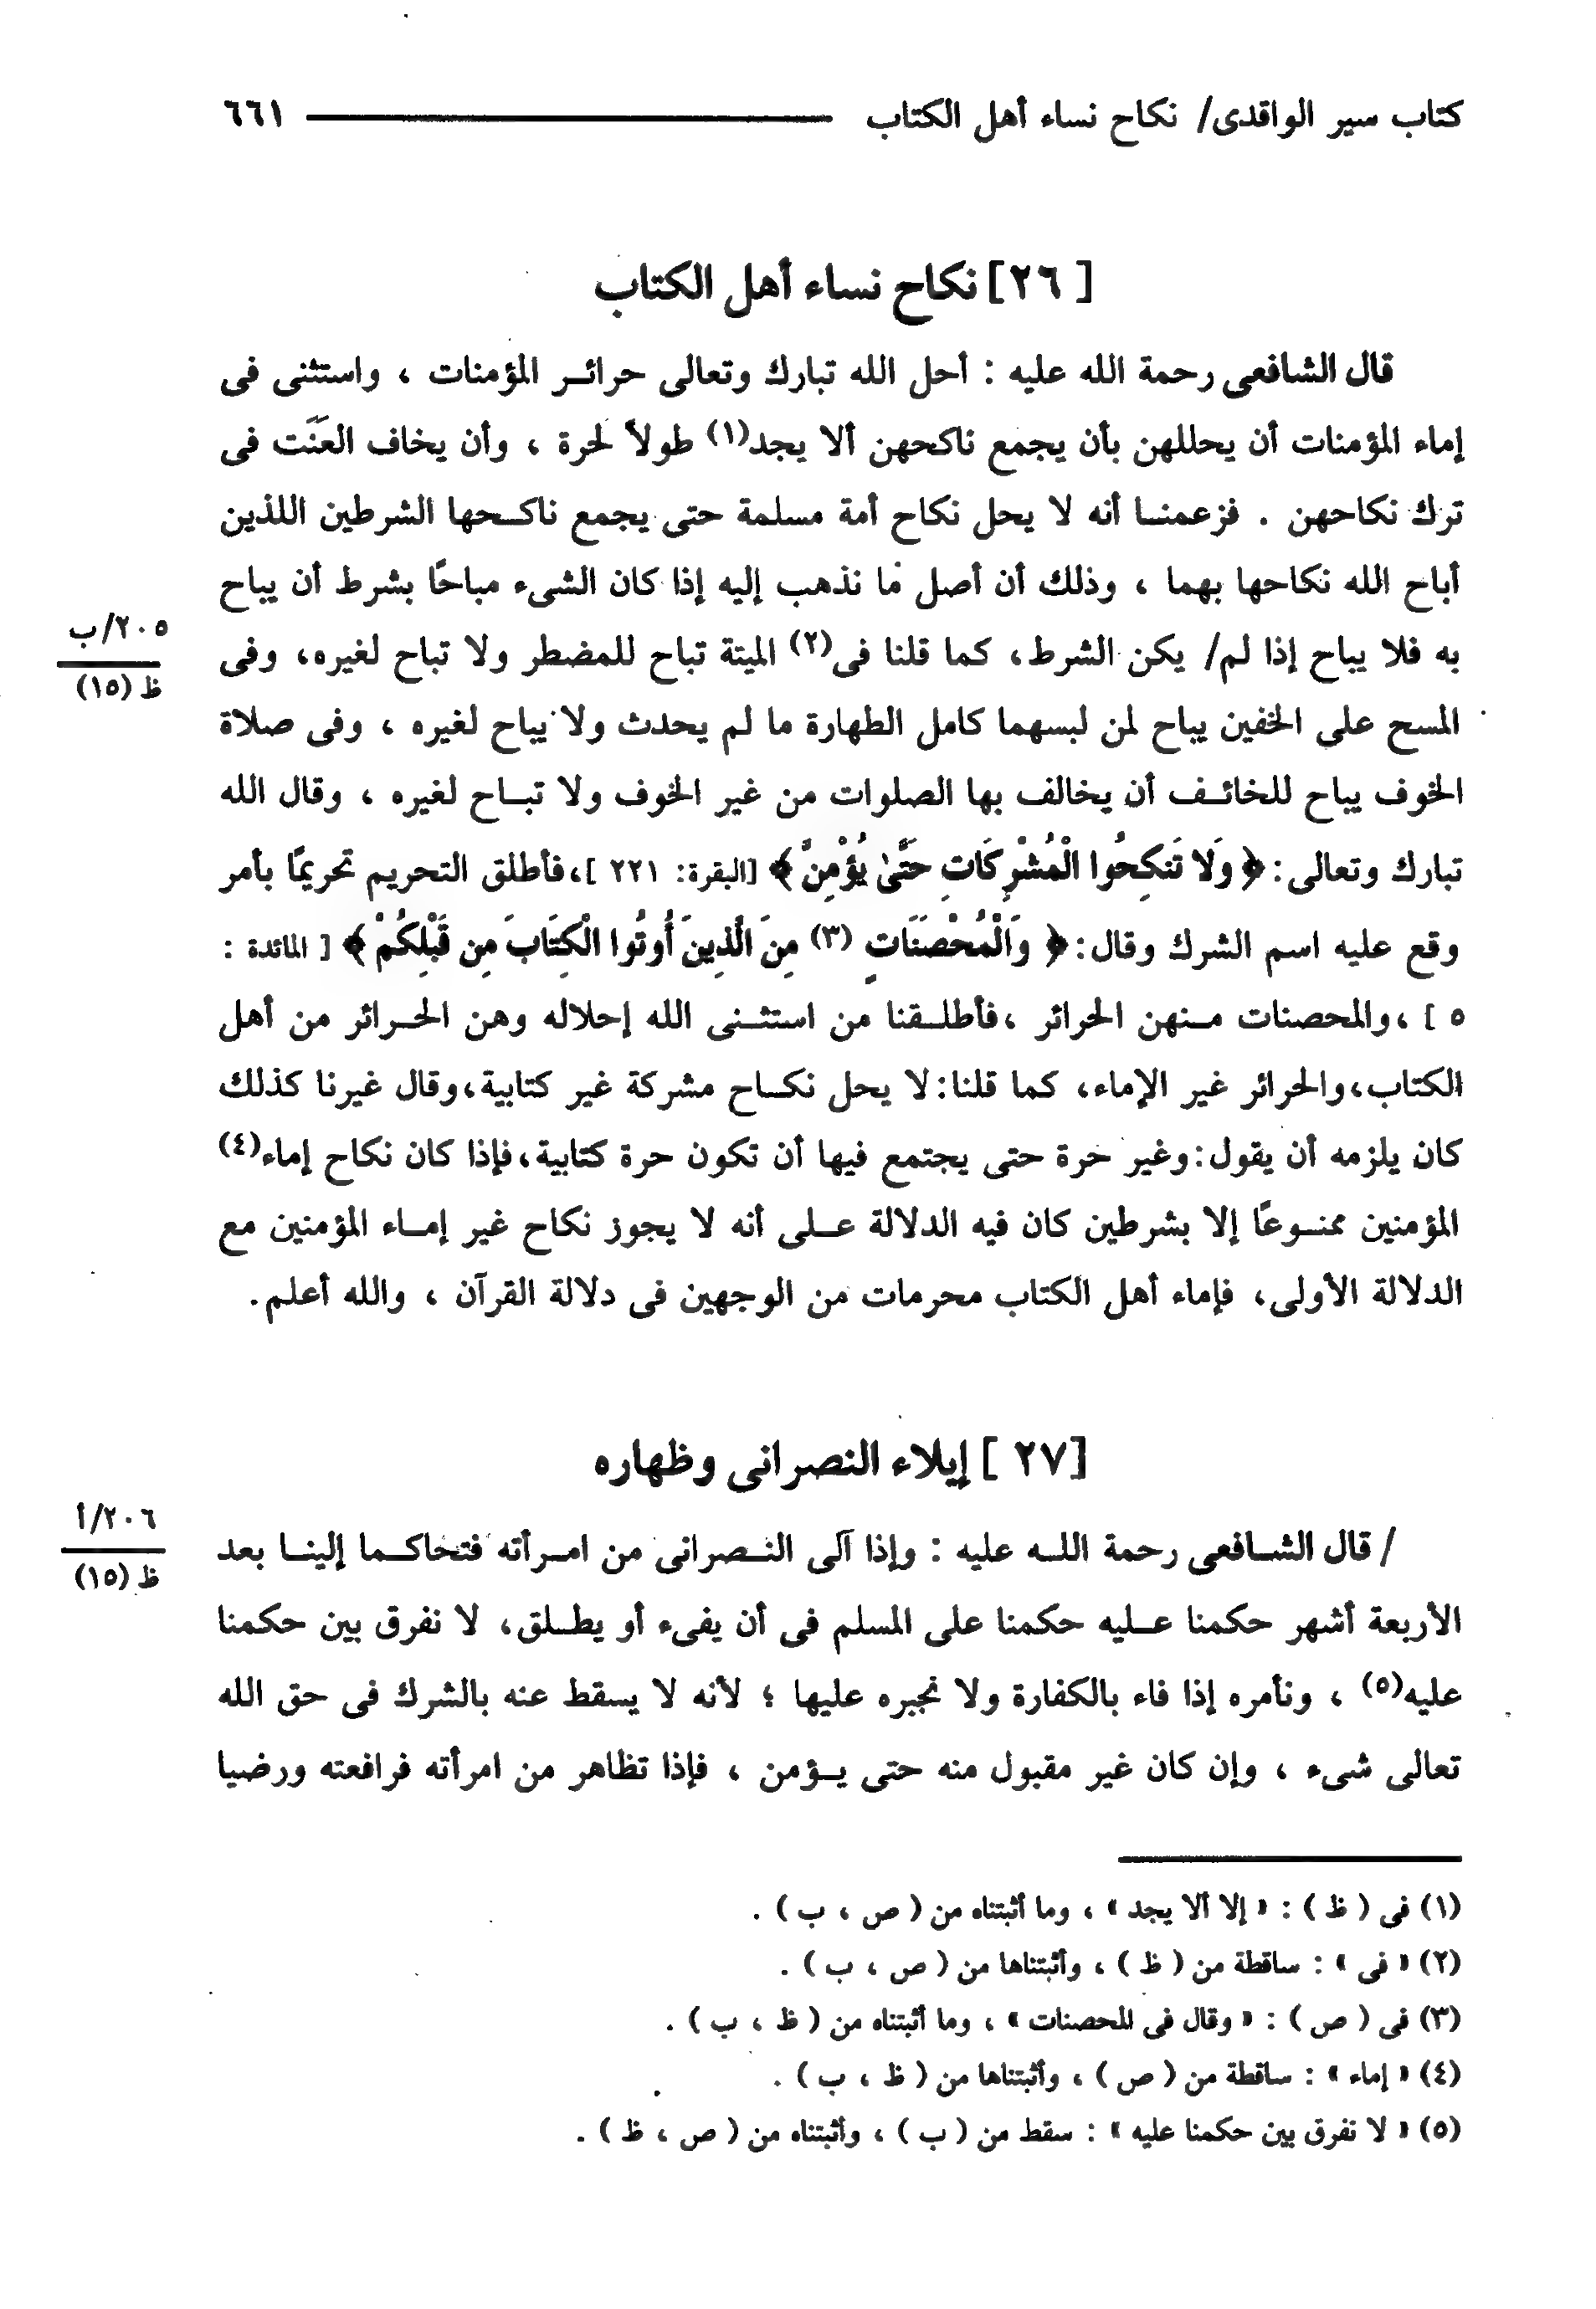 كتاب سير الواقدى/ نكاح نساء أهل الكتاب ٦٦١
[٢٦] نكاح نساء أهل الكتاب
قال الشافعى رحمة الله عليه : أحل الله تبارك وتعالى حرائر المؤمنات ، واستثنى فى
إماء المؤمنات أن يحللهن بأن يجمع ناكحهن ألا يجد(١) طولاً لحرة ، وأن يخاف العَنَت فى
ترك نكاحهن . فزعمنا أنه لا يحل نكاح أمة مسلمة حتى يجمع ناكحها الشرطين اللذين
أباح الله نكاحها بهما ، وذلك أن أصل ما نذهب إليه إذا كان الشىء مباحًا بشرط أن يباح
به فلا يباح إذا لم/ يكن الشرط، كما قلنا فى(٢) الميتة تباح للمضطر ولا تباح لغيره، وفى
٢٠٥/ب
ظ (١٥)
المسح على الخفين يباح لمن لبسهما كامل الطهارة ما لم يحدث ولا يباح لغيره ، وفى صلاة
الخوف يباح للخائف أن يخالف بها الصلوات من غير الخوف ولا تباح لغيره ، وقال الله
تبارك وتعالى: ﴿ وَلا تَنكِحُوا الْمُشْرِكَاتِ حَتَّىٰ يُؤْمِنَّ ﴾ [البقرة: ٢٢١ ]،فأطلق التحريم تحريمًا بأمر
وقع عليه اسم الشرك وقال: ﴿ وَالْمُحْصَنَاتِ (٣) مِنَ الَّذِينَ أُوتُوا الْكِتَابَ مِن قَبْلِكُمْ ﴾ [ المائدة :
٥ ] ،والمحصنات منهن الحرائر ،فأطلقنا من استثنى الله إحلاله وهن الحرائر من أهل
الكتاب،والحرائر غير الإماء، كما قلنا:لا يحل نكاح مشركة غير كتابية،وقال غيرنا كذلك
كان يلزمه أن يقول:وغير حرة حتى يجتمع فيها أن تكون حرة كتابية،فإذا كان نكاح إماء(٤)
المؤمنين ممنوعًا إلا بشرطين كان فيه الدلالة على أنه لا يجوز نكاح غير إماء المؤمنين مع
الدلالة الأولى، فإماء أهل الكتاب محرمات من الوجهين فى دلالة القرآن ، والله أعلم.
[٢٧ ] إيلاء النصرانى وظهاره
/ قال الشافعى رحمة الله عليه : وإذا آلى النصرانى من امرأته فتحاكما إلينا بعد
٢٠٦/أ
ظ (١٥)
الأربعة أشهر حكمنا عليه حكمنا على المسلم فى أن يفىء أو يطلق، لا نفرق بين حكمنا
عليه(٥) ، ونأمره إذا فاء بالكفارة ولا نجبره عليها ؛ لأنه لا يسقط عنه بالشرك فى حق الله
تعالى شىء ، وإن كان غير مقبول منه حتى يؤمن ، فإذا تظاهر من امرأته فرافعته ورضيا
(١) فى ( ظ ) : « إلا ألا يجد » ، وما أثبتناه من ( ص ، ب ) .
(٢) « فى » : ساقطة من ( ظ ) ، وأثبتناها من ( ص ، ب ) .
(٣) فى ( ص ) : « وقال فى المحصنات » ، وما أثبتناه من ( ظ ، ب ) .
(٤) « إماء » : ساقطة من ( ص ) ، وأثبتناها من ( ظ ، ب ) .
(٥) « لا نفرق بين حكمنا عليه » : سقط من ( ب ) ، وأثبتناه من ( ص ، ظ ) .